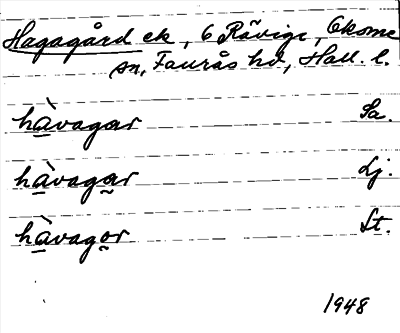 Hagagård ek, 6 Rävige, Oksme
sn, Faurås hd, Hall. l.
hàvagar Sa.
hàvagar Lj.
hàvagor St.
1948